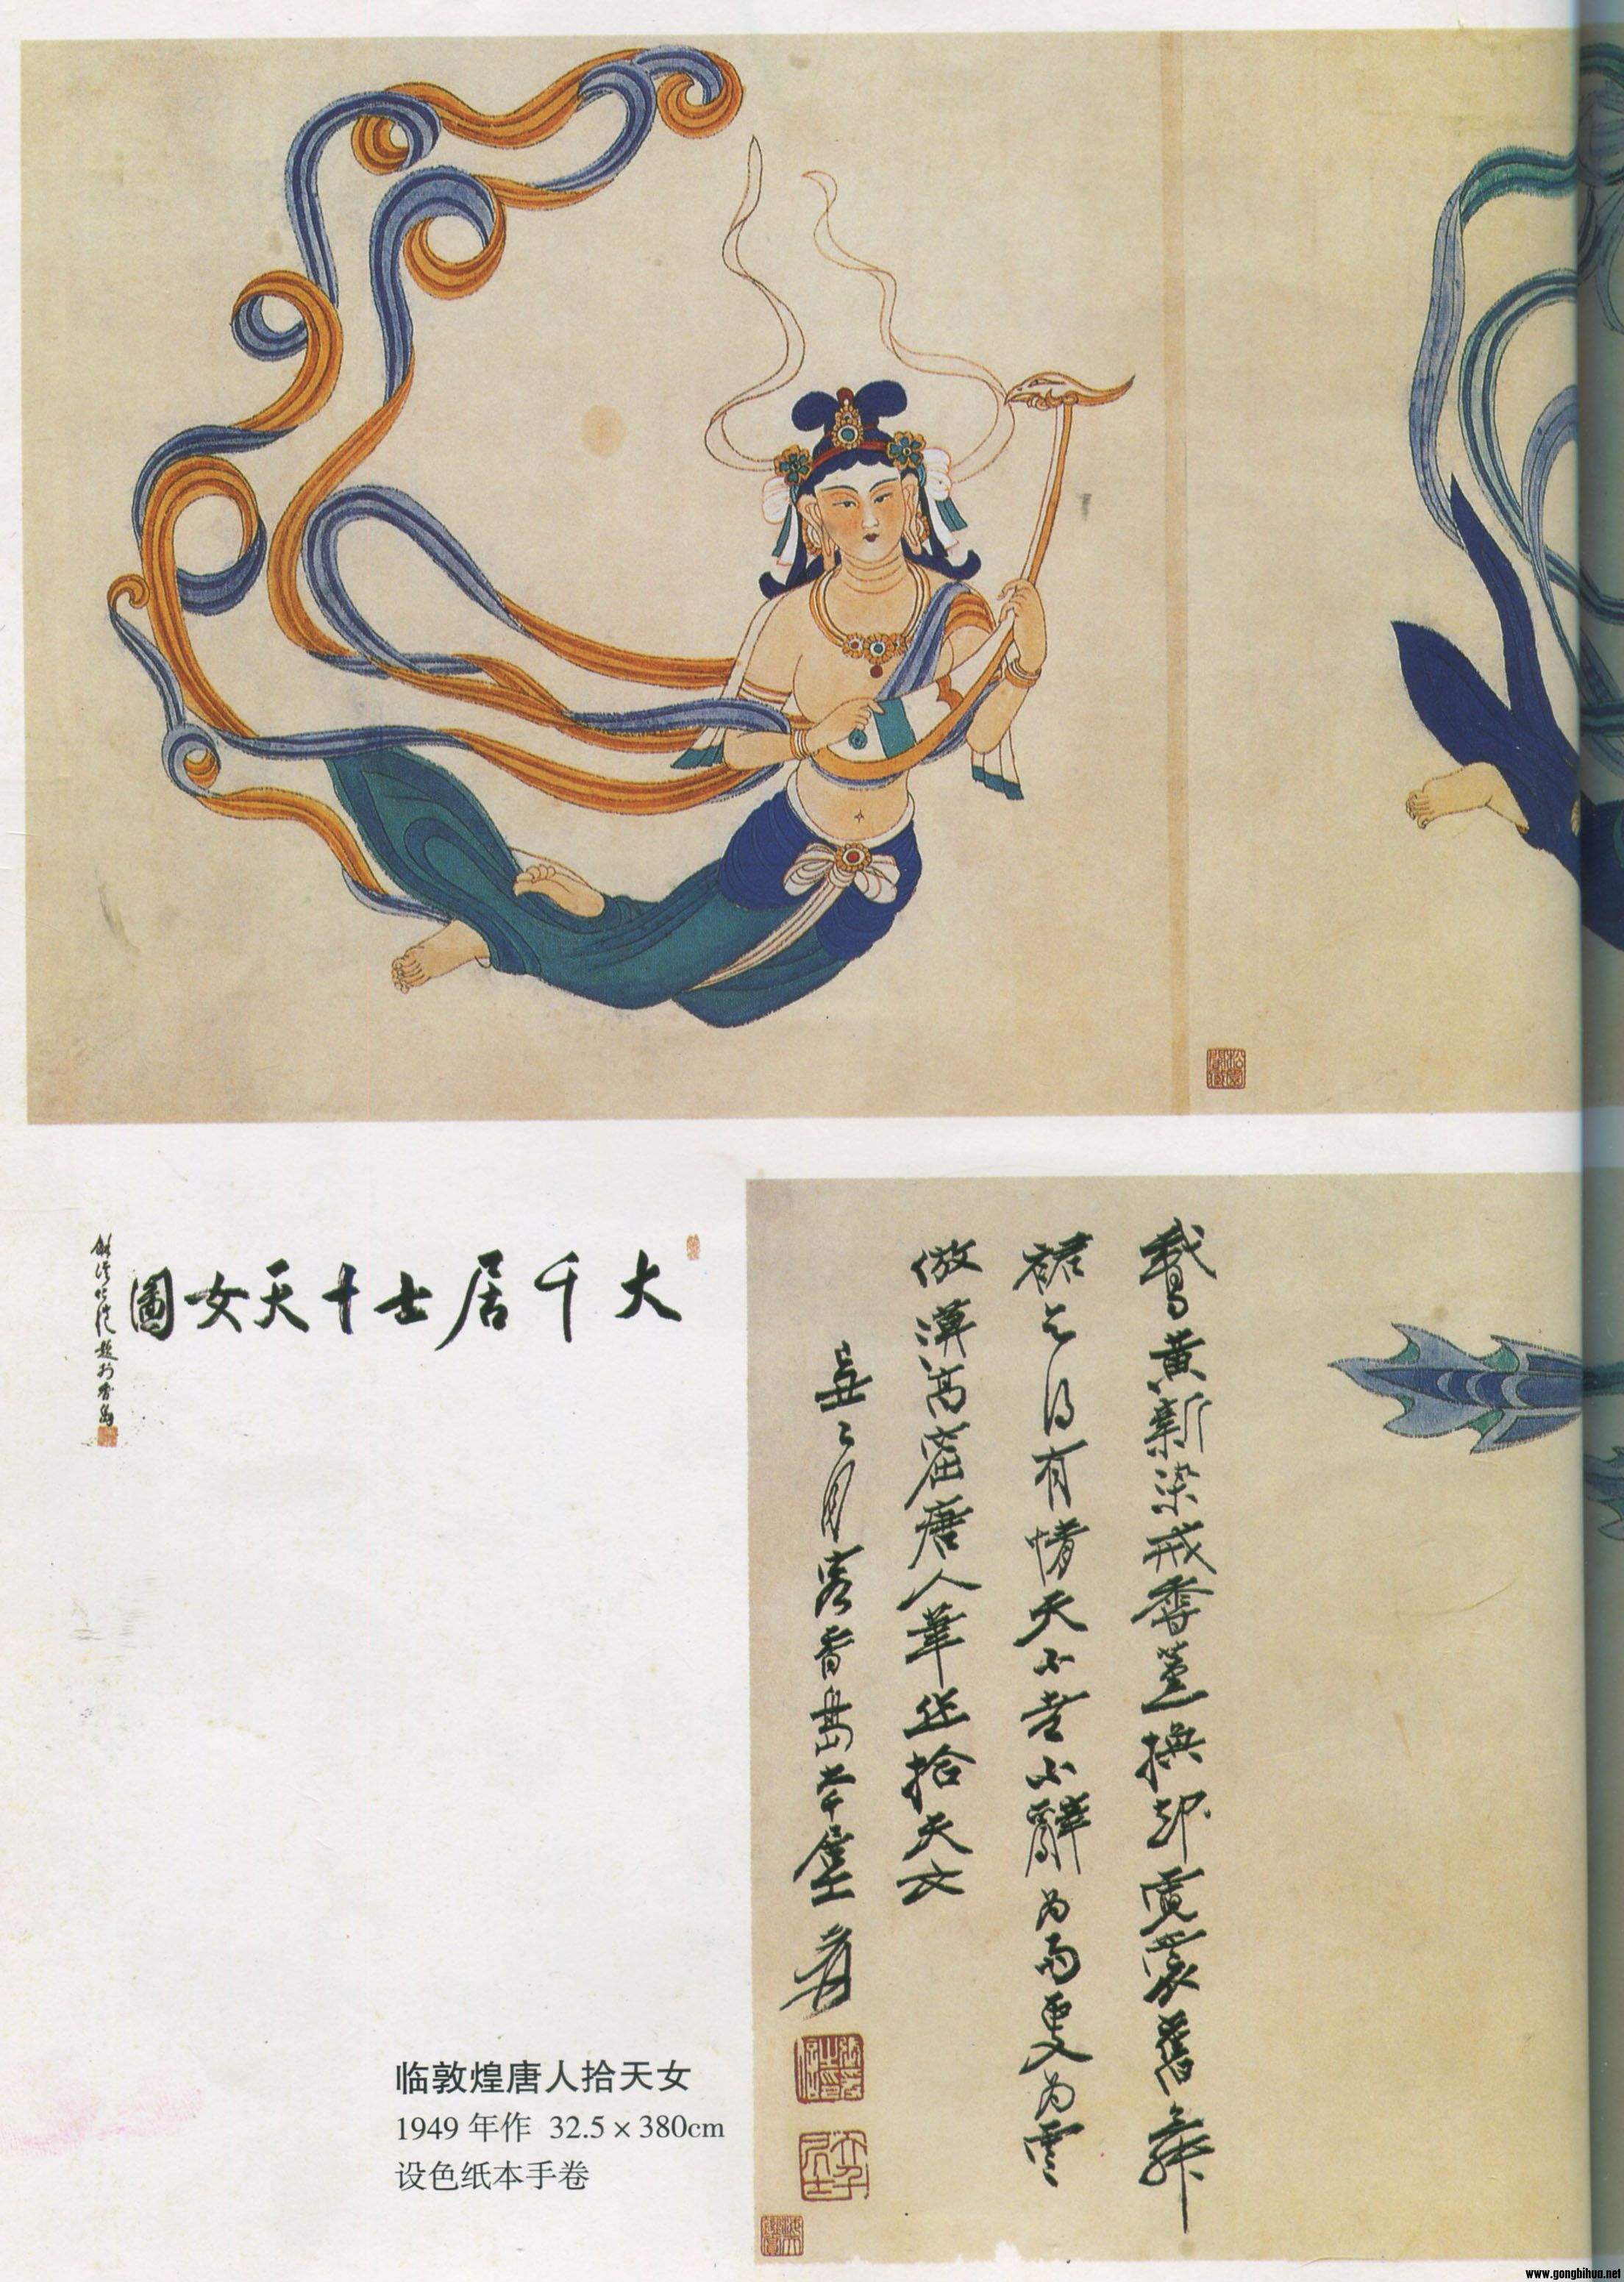 大千居士十天女圖
題於香島
鵞黄新染戒香薰換却霓裳舊舞
裙乞得有情天不苦不辭為雨更為雲
倣漠高窟唐人筆作拾天女
己丑二月客香島大千居士爰
临敦煌唐人拾天女
1949 年作 32.5 × 380cm
设色纸本手卷
www.gongbihua.net